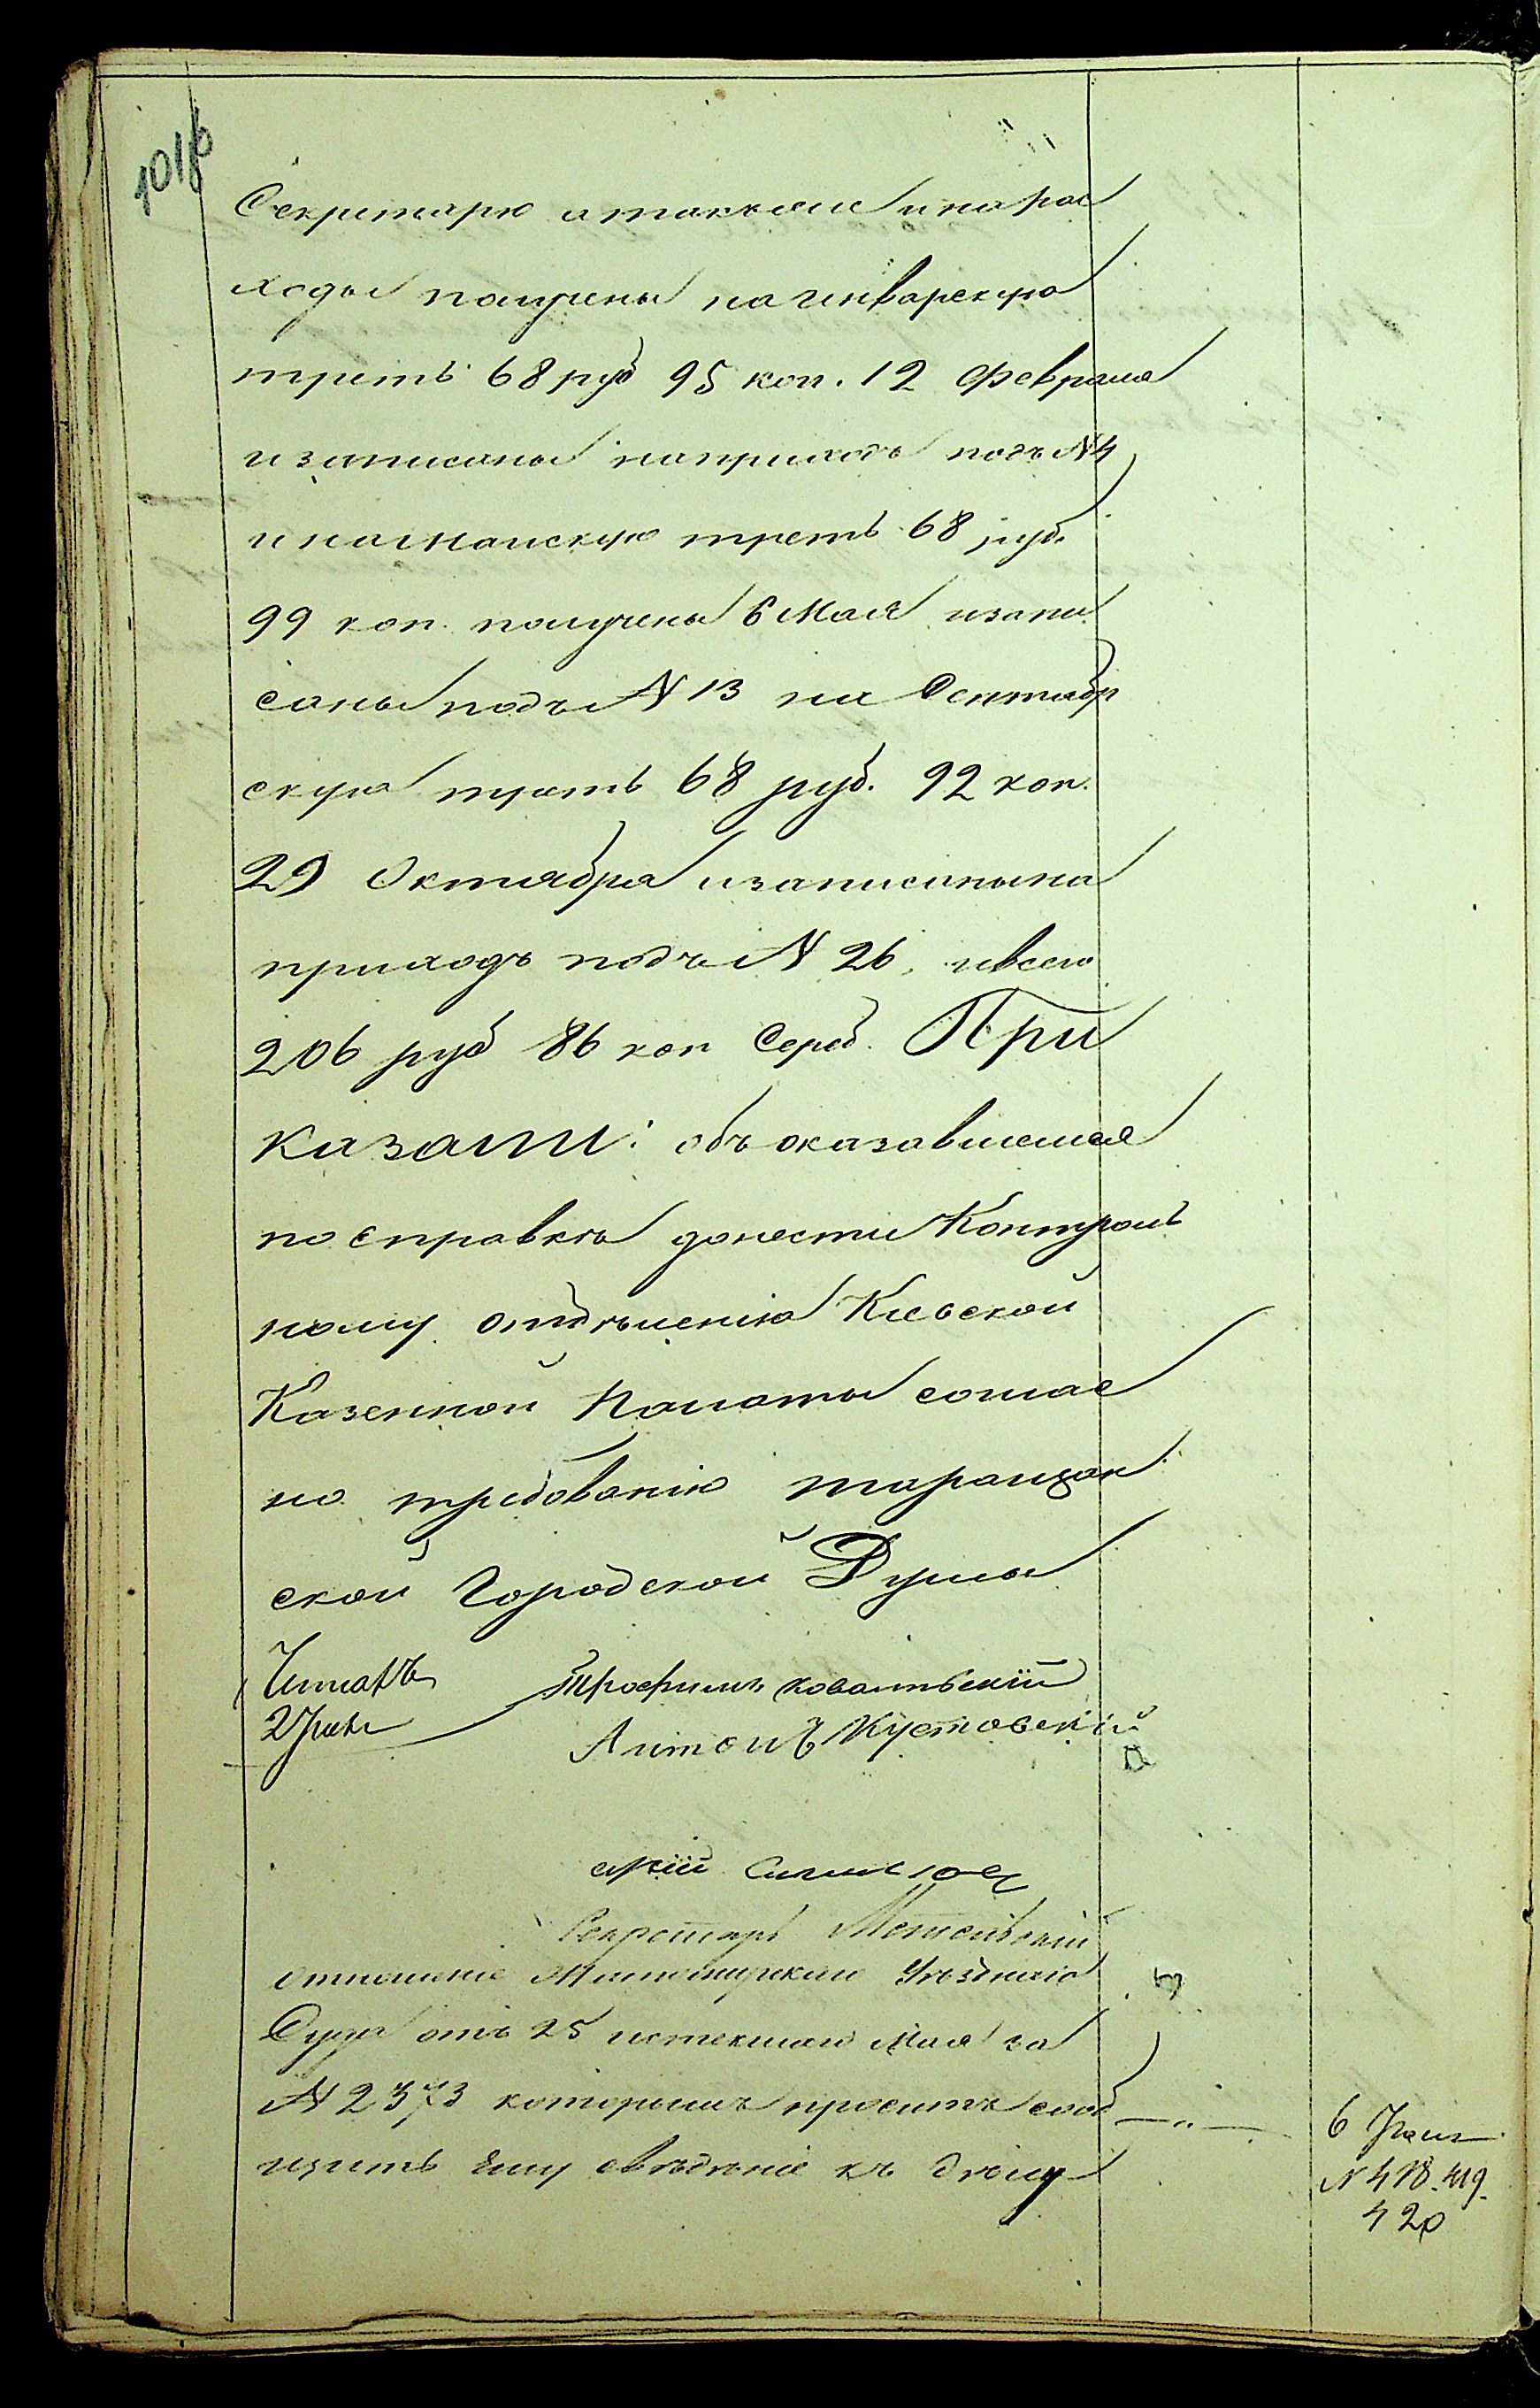 101б
Секретарю атакже инарас
ходы получены наянварскую
треть 68 руб 95 коп. 12 Февраля
изаписаны наприходъ подъ N 4
инамайскую треть 68 руб.
99 коп. получены 6 Мая изапи
саны подъ N 13 на Сентябр
скую треть 68 руб. 92 коп.
29 Октября изаписанына
приходъ подъ N 26, ивсего
206 руб 86 коп Сереб. При
казали: объоказавшемся
по справкѣ донести Контроль
ному отдѣленію Кіевской
Казенной Палаты соглас
но требованію таращан
ской Городской Думы
Читалъ
Трофимъ ковальскій
Антонъ Кустовскій
Секретарь
отношеніе Уѣзднаго
Суда отъ 25 истекшаго Мая за
N 2373 которымъ проситъ сооб
щить ему свѣдѣніе къ дѣлу
6
N 418. 419.
420